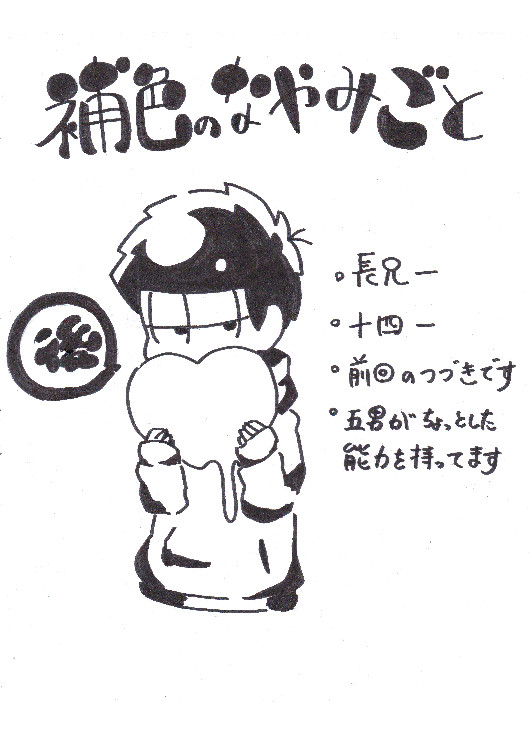 補色のなやみごと
後
。長兄一
。十四一
。前回のつづきです
。五男がちょっとした
能力を持ってます